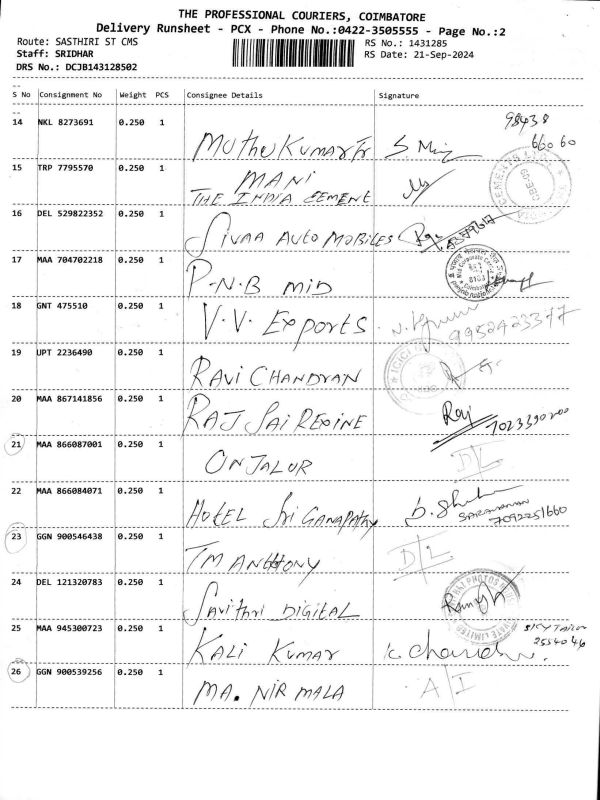 THE PROFESSIONAL COURIERS, COIMBATORE
Delivery Runsheet - PCX - Phone No.:0422-3505555 - Page No.:2
Route: SASTHIRI ST CMS
RS No.: 1431285
Staff: SRIDHAR
RS Date: 21-Sep-2024
DRS No.: DCJB143128502
S No Consignment No Weight PCS Consignee Details Signature
14 NKL 8273691 0.250 1 MUTHU KUMAR Tr 98438
66060
15 TRP 7795570 0.250 1 MANI
THE INDIA CEMENT
16 DEL 529822352 0.250 1 SIVAA AUTO MOBILES
17 MAA 704702218 0.250 1 P.N.B MID
18 GNT 475510 0.250 1 V.V. Exports 9952423377
19 UPT 2236490 0.250 1 RAVI CHANDRAN
20 MAA 867141856 0.250 1 RAJ SAI REXINE Raj
21 MAA 866087001 0.250 1 ONJALUR D/L
22 MAA 866084071 0.250 1 HOTEL Sri GANAPATHY
SARAVANAN
7092251660
23 GGN 900546438 0.250 1 TM ANTHONY D/L
24 DEL 121320783 0.250 1 SAVITHRI DIGITAL
25 MAA 945300723 0.250 1 KALI KUMAR
2554046
26 GGN 900539256 0.250 1 MA. NIRMALA A/I